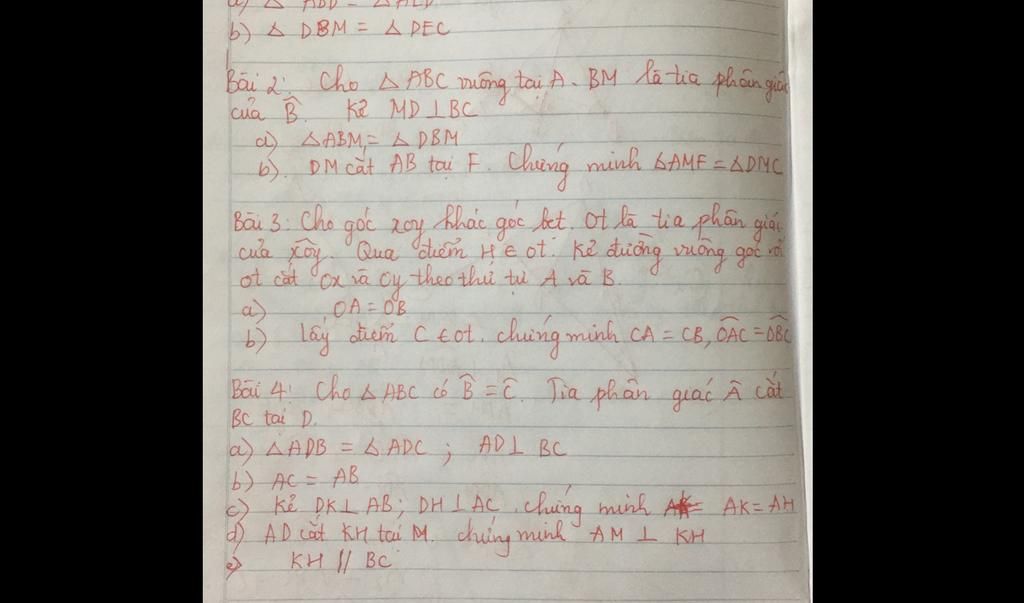 a) Δ ABD = Δ ACD
b) Δ DBM = Δ DEC
Bài 2: Cho Δ ABC vuông tại A. BM là tia phân giác
của B̂. Kẻ MD ⊥ BC
a) ΔABM = ΔDBM
b). DM cắt AB tại F. Chứng minh ΔAMF = ΔDMC
Bài 3: Cho góc xoy khác góc bet. Ot là tia phân giác
của xôy. Qua điểm H ∈ ot. Kẻ đường vuông góc với
ot cắt Ox và Oy theo thứ tự A và B.
a) OA = OB
b) lấy điểm C ∈ ot. chứng minh CA = CB, OAC = OBC
Bài 4: Cho Δ ABC có B̂ = Ĉ. Tia phân giác Â cắt
BC tại D.
a) Δ ADB = Δ ADC ; AD ⊥ BC
b) AC = AB
c) Kẻ DK ⊥ AB; DH ⊥ AC. chứng minh AK = AH
d) AD cắt KH tại M. chứng minh AM ⊥ KH
e) KH // BC